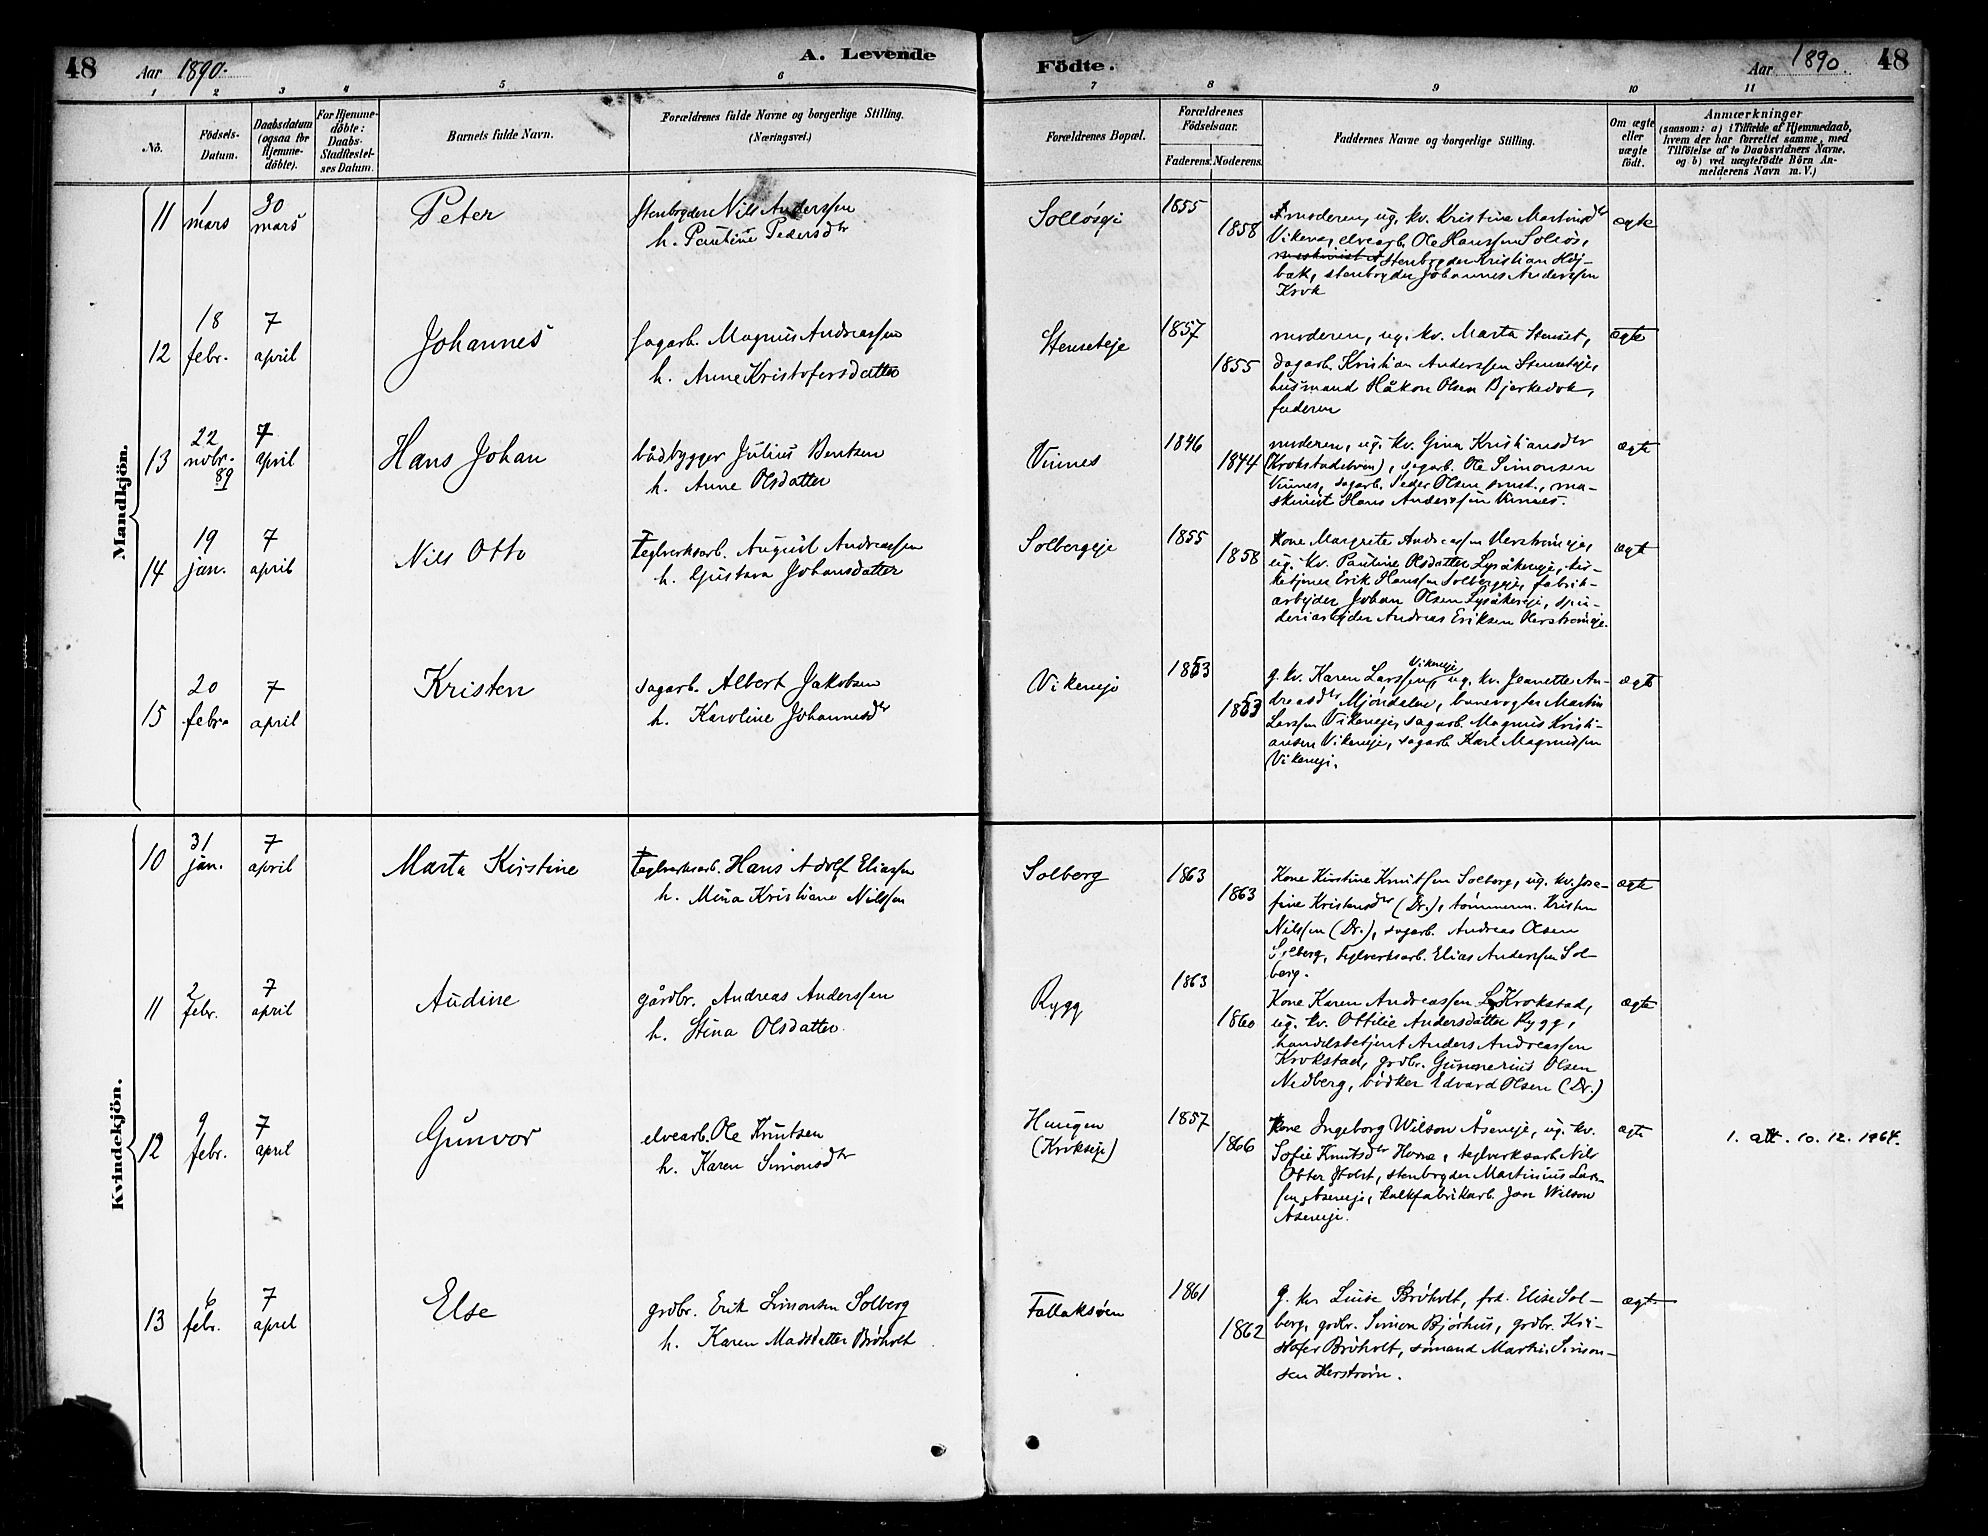 48 Aar 1890. A. Levende
Födte. Aar 1890. 48
1 2 3 4 5 6 7 8 9 10 11
No.
Födsels-
Datum.
Daabsdatum
(ogsaa for
Hjemme-
döbte).
For Hjemme-
döbte:
Daabs-
Stadfæstel-
ses Datum.
Barnets fulde Navn.
Forældrenes fulde Navne og borgerlige Stilling.
(Næringsvei.)
Forældrenes Bopæl.
Forældrenes
Födselsaar.
Faderens. Moderens.
Faddernes Navne og borgerlige Stilling.
Om ægte
eller
uægte
födt.
Anmærkninger
(saasom: a) i Tilfælde af Hjemmedaab,
hvem der har forrettet samme, med
Tilföielse af to Daabsvidners Navne,
og b) ved uægtefödte Börn An-
melderens Navn m. V.)
Mandkjön.
11
1
mars
30
mars
Peter
stenbryder Nils Anderssen
h. Pauline Pedersdtr
Solløseje
1855
1858
moderen, ug. kv. Kristine Martinsdtr
Vikeneje, elvearb. Ole Hanssen Solløs,
stenbryder Kristian Høj-
bak, stenbryder Johannes Anderssen
Krok
ægte
12
18
febr.
7
april
Johannes
sagarb. Magnus Andreassen
h. Anne Kristofersdatter
Stenseteje
1857
1855
moderen, ug. kv. Marta Stenset,
dagarb. Kristian Anderssen Stenseteje,
husmand Håkon Olsen Bjerkedok,
faderen
ægte
13
22
novbr.
89
7
april
Hans Johan
bådbygger Julius Bentsen
h. Anne Olsdatter
Vinnes
1846
1844
moderen, ug. kv. Gina Kristiansdtr
(Krokstadelven), sagarb. Ole Simonsen
Vinnes, sagarb. Peder Olsen smst., ma-
skinist Hans Anderssen Vinnes.
ægte
14
19
jan.
7
april
Nils Otto
teglverksarb. August Andreassen
h. Gustava Johansdatter
Solbergeje
1855
1858
kone Margrete Andreassen Herstrømeje,
ug. kv. Pauline Olsdatter Lysåkereje, kir-
ketjener Erik Hanssen Solbergeje, fabrik-
arbejder Johan Olsen Lysåkereje, spin-
deriarbejder Andreas Eriksen Herstrømeje.
ægte
15
20
febr.
7
april
Kristen
sagarb. Albert Jakobsen
h. Karoline Johannesdtr
Vikeneje
1853
1853
Vikeneje
g. kv. Karen Larssen, ug. kv. Jeanette An-
dreasdtr Mjøndalen, banevogter Martin
Larssen Vikeneje, sagarb. Magnus Kristi-
ansen Vikeneje, sagarb. Karl Magnussen
Vikeneje.
ægte
Kvindekjön.
10
31
jan.
7
april
Marta Kirstine
teglverksarb. Hans Adolf Eliassen
h. Mina Kristiane Nilssen
Solberg
1863
1863
Kone Kirstine Knutssen Solberg, ug. kv. Jose-
fine Kristensdtr (Dr.), tømmerm. Kristen
Nilssen (Dr.), sagarb. Andreas Olsen
Solberg, teglverksarb. Elias Anderssen Sol-
berg.
ægte
11
2
febr.
7
april
Audine
gårdbr. Andreas Anderssen
h. Stina Olsdatter
Rygg
1863
1860
Kone Karen Andreassen L. Krokstad,
ug. kv. Ottilie Andersdatter Rygg,
handelsbetjent Anders Andreassen
Krokstad, grdbr. Gunnerius Olsen
Nedberg, bødker Edvard Olsen (Dr.)
ægte
12
9
febr.
7
april
Gunvor
elvearb. Ole Knutsen
h. Karen Simonsdtr
Haugen
(Krokseje)
1857
1866
Kone Ingeborg Wilson Åseneje, ug. kv.
Sofie Knutsdtr Horne, teglverksarb. Nils
Otter Holst, stenbryder Martinius Lars-
sen Åseneje, kalkfabrikarb. Jon Wilson
Aseneje.
ægte
1. att. 10. 12. 1964.
13
6
febr.
7
april
Else
grdbr. Erik Simonsen Solberg
h. Karen Madsdatter Brøholt
Fallaksøen
1861
1862
g. kv. Luise Brøholt, frk. Elise Sol-
berg, grdbr. Simon Bjørhus, grdbr. Kri-
stofer Brøholt, sømand Martin Simon-
sen Herstrøm.
ægte